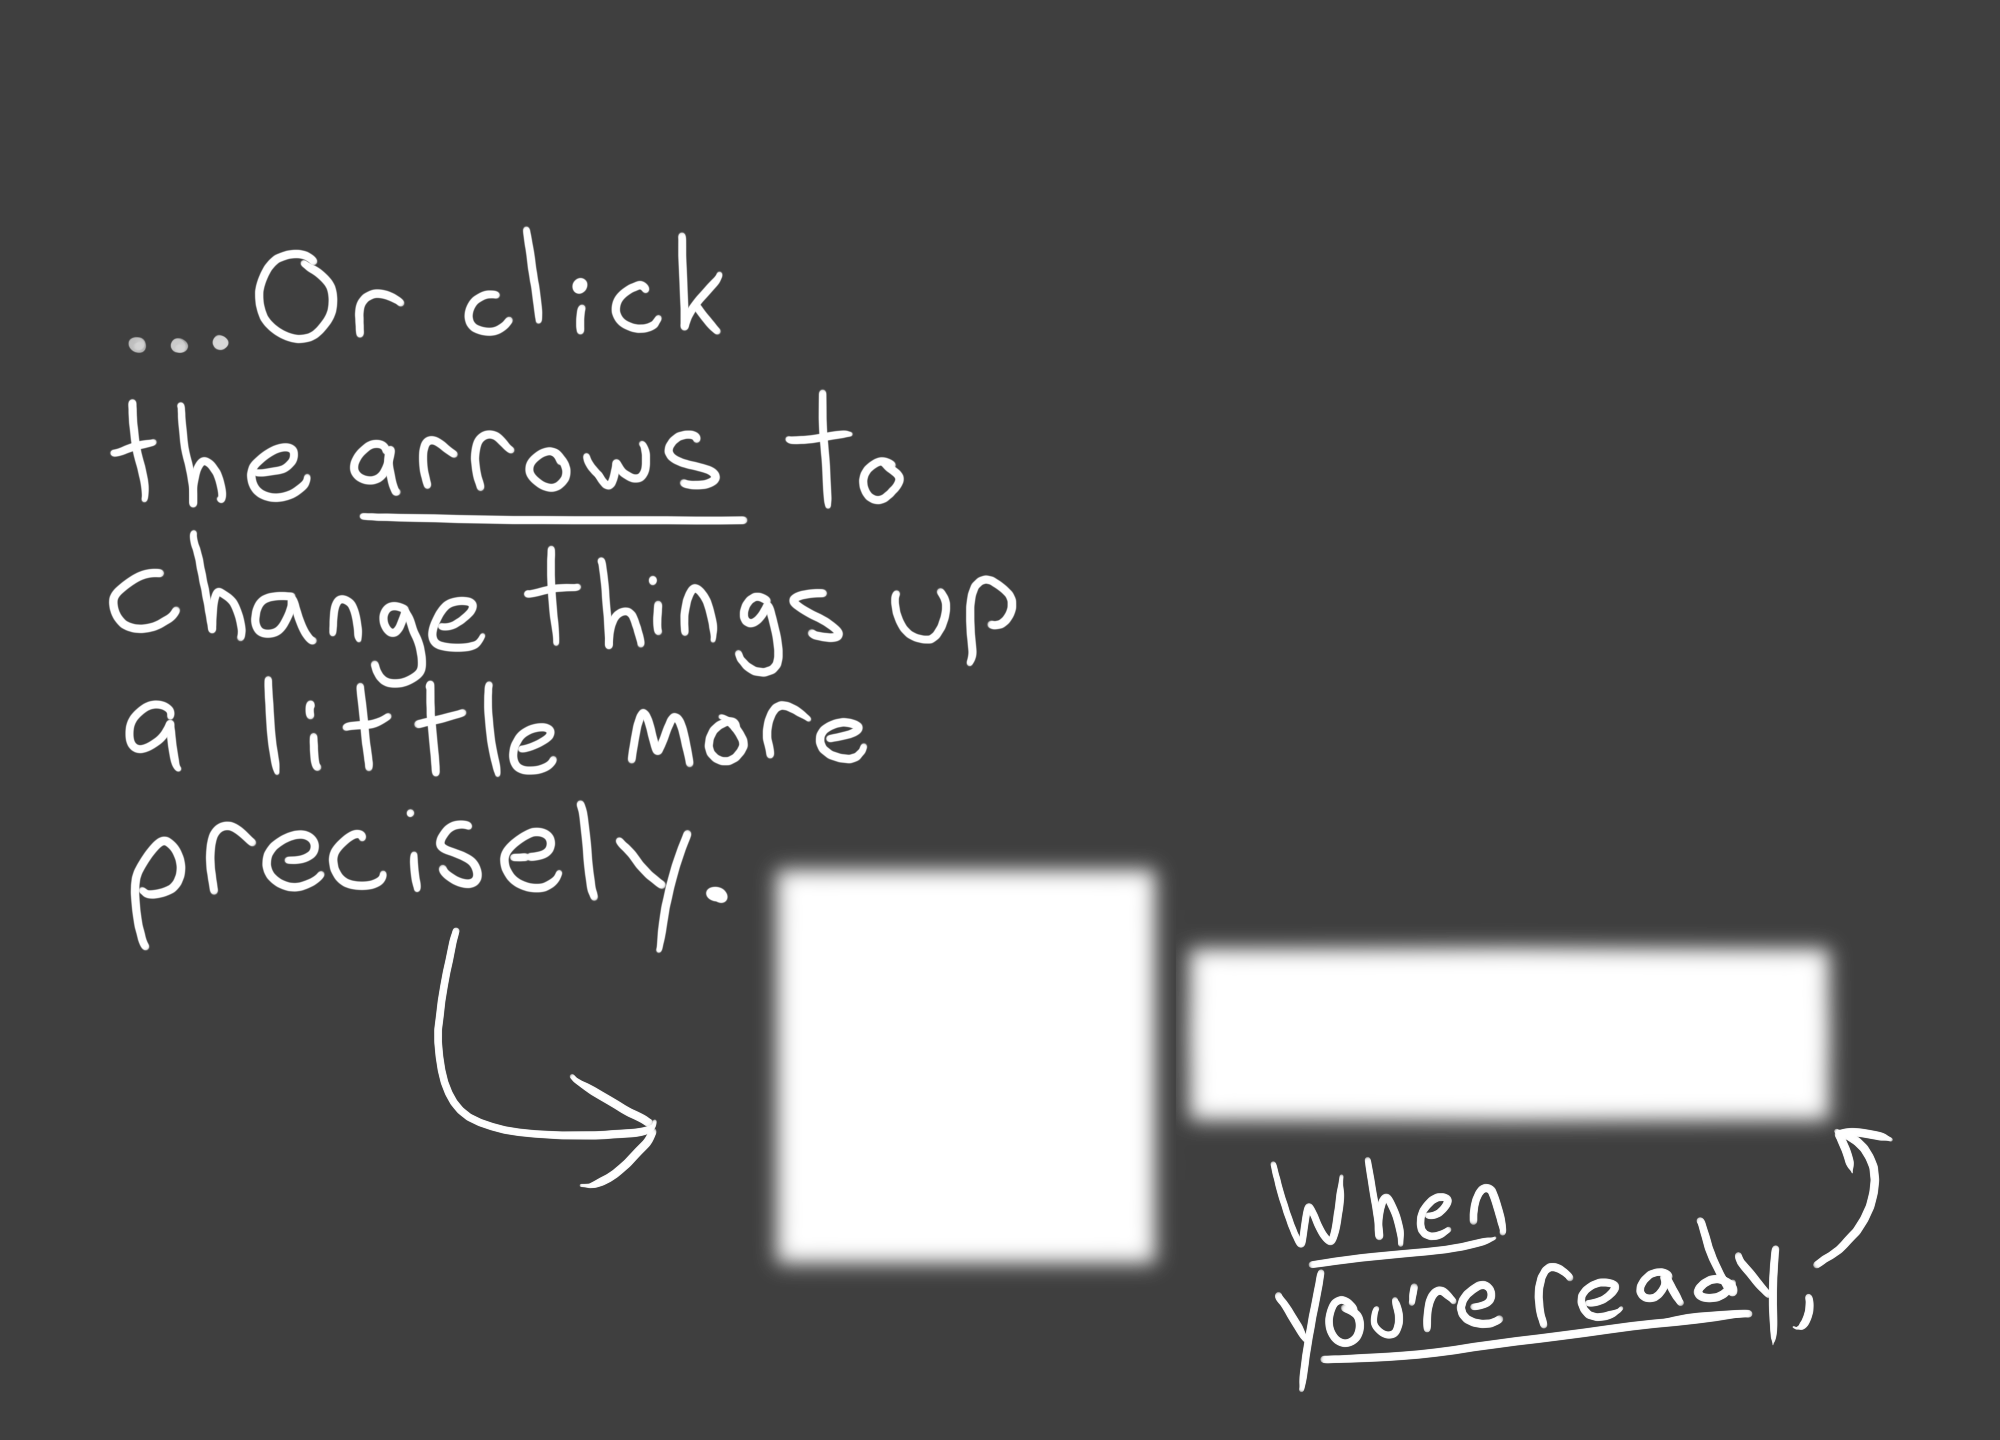 ...Or click
the arrows to
change things up
a little more
precisely.
When
you're ready,